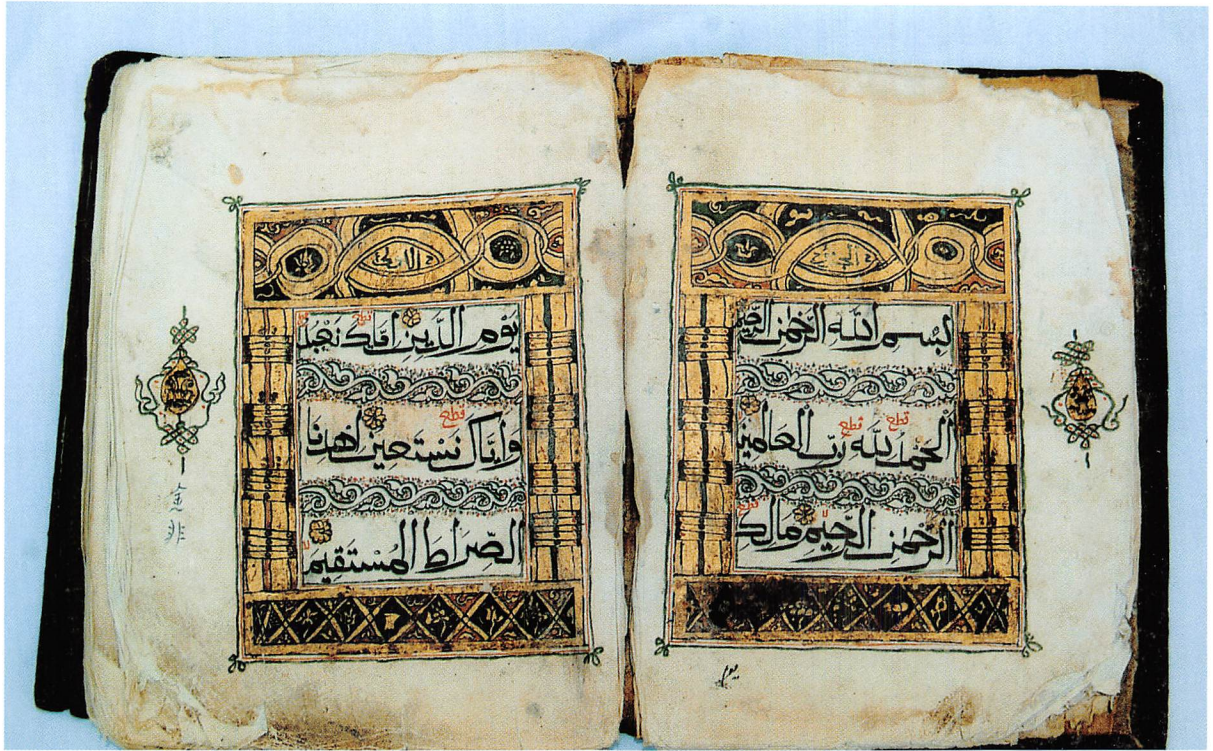 بِسْمِ اللَّهِ الرَّحْمٰنِ الرَّحِيمِ
قطع قطع
الْحَمْدُ لِلَّهِ رَبِّ الْعَالَمِينَ
الرَّحْمٰنِ الرَّحِيمِ مَالِكِ
يوم
يَوْمِ الدِّينِ إِيَّاكَ نَعْبُدُ
قطع
وَإِيَّاكَ نَسْتَعِينُ اهْدِنَا
الصِّرَاطَ الْمُسْتَقِيمَ